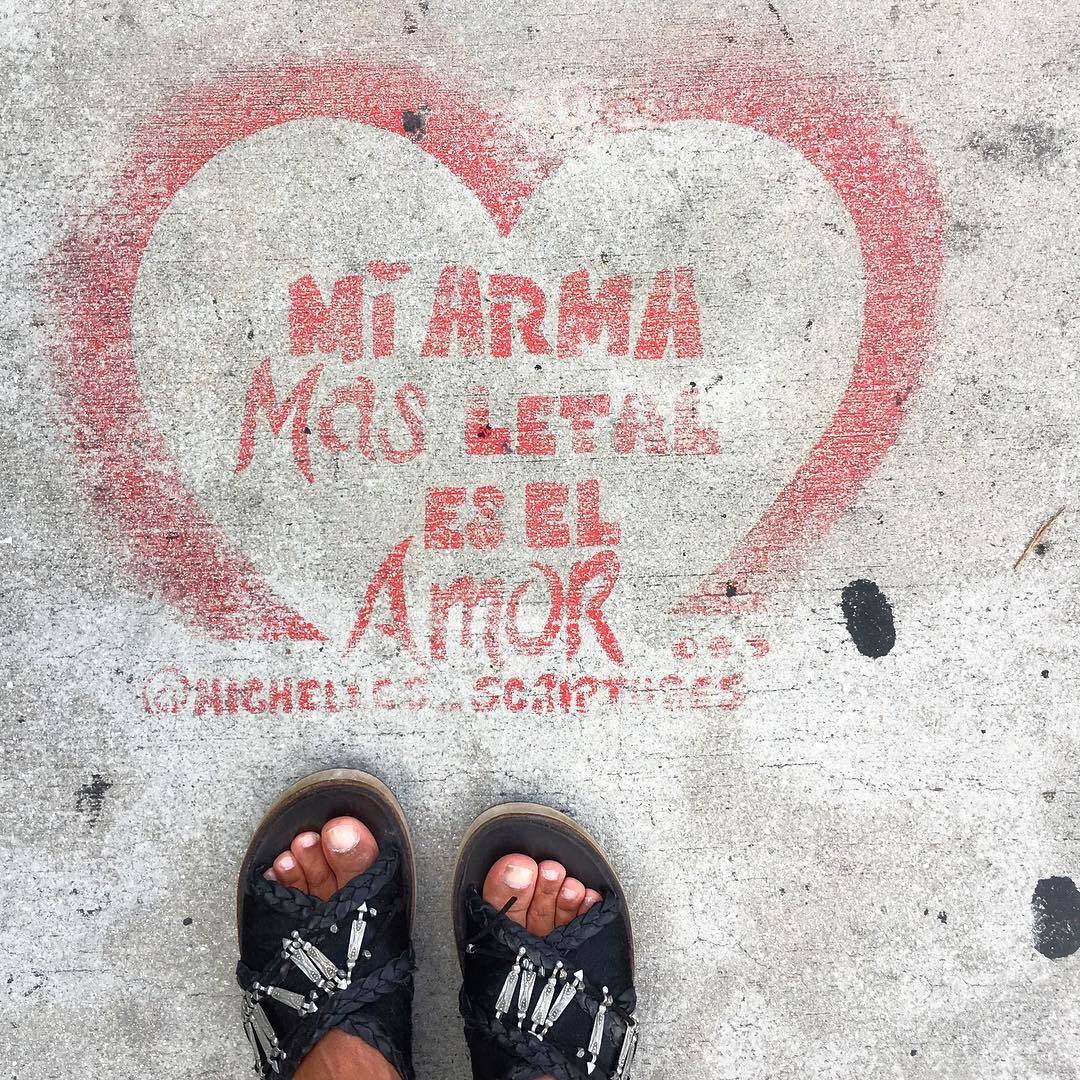 Mi ARMA
Mas LETAL
ES EL
AmOR ...
@MICHELLES_SCRIPTURES